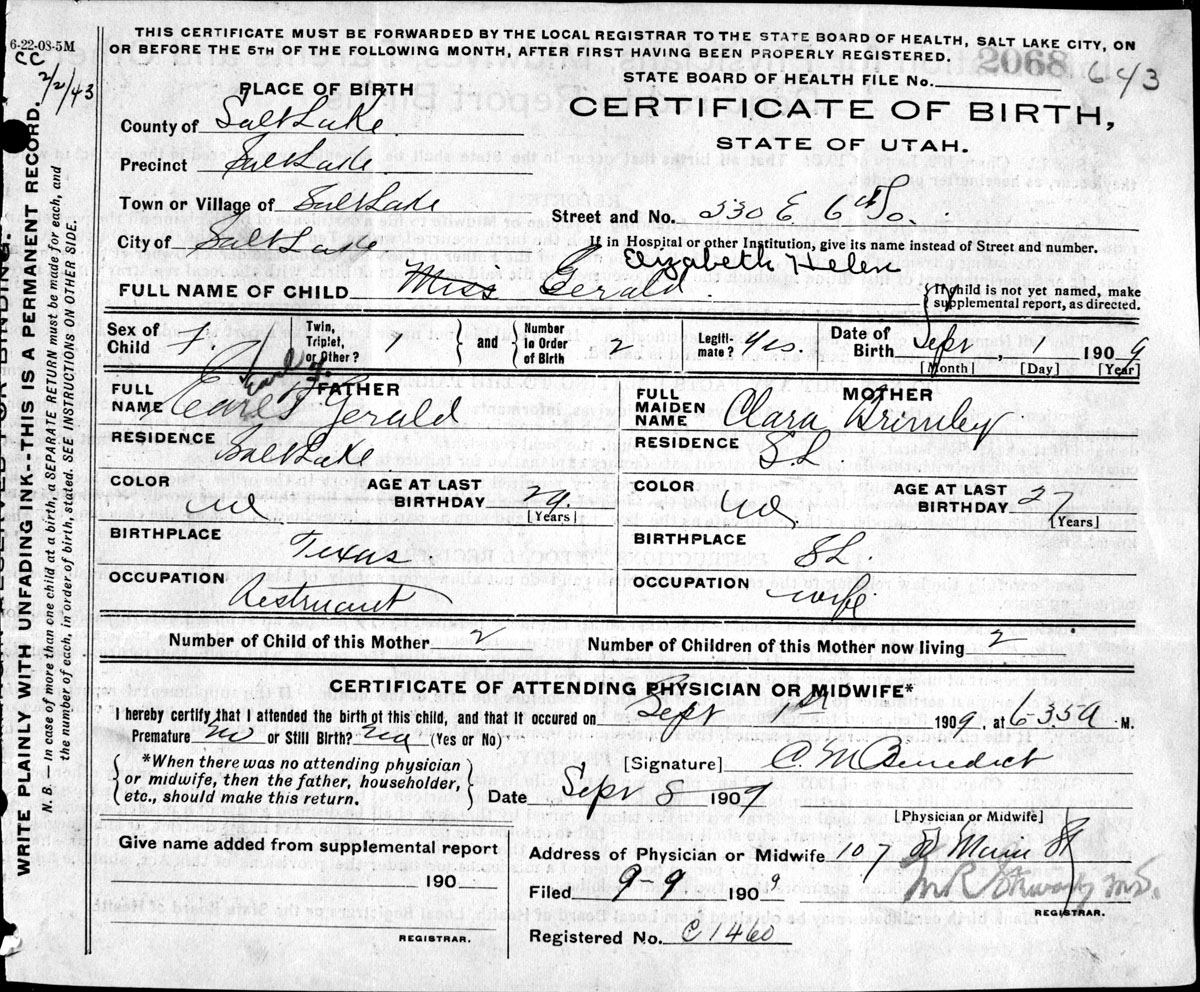 6-22-08-5M
CC
2/2/43
THIS CERTIFICATE MUST BE FORWARDED BY THE LOCAL REGISTRAR TO THE STATE BOARD OF HEALTH, SALT LAKE CITY, ON
OR BEFORE THE 5TH OF THE FOLLOWING MONTH, AFTER FIRST HAVING BEEN PROPERLY REGISTERED.
2068 643
STATE BOARD OF HEALTH FILE No.
PLACE OF BIRTH
CERTIFICATE OF BIRTH,
STATE OF UTAH.
County of Salt Lake
Precinct Salt Lake
Town or Village of Salt Lake
Street and No. 530 E 6th So.
City of Salt Lake
If in Hospital or other Institution, give its name instead of Street and number.
Elizabeth Helen
FULL NAME OF CHILD Miss Gerald
{If child is not yet named, make supplemental report, as directed.
Sex of Child F Twin, Triplet, or Other? 1 } and { Number in Order of Birth 2 Legiti-mate? Yes Date of Birth Sept, 1 1909
[Month] [Day] [Year]
Earl F.
FATHER
FULL NAME Gerald
RESIDENCE Salt Lake
COLOR AGE AT LAST BIRTHDAY 29.
[Years]
BIRTHPLACE Texas
OCCUPATION Resturant
MOTHER
FULL MAIDEN NAME Clara Brimley
RESIDENCE S.L
COLOR AGE AT LAST BIRTHDAY 27
[Years]
BIRTHPLACE SL.
OCCUPATION wife
Number of Child of this Mother 2 Number of Children of this Mother now living 2
CERTIFICATE OF ATTENDING PHYSICIAN OR MIDWIFE*
I hereby certify that I attended the birth of this child, and that it occured on Sept 1st 1909. at 6 35 a M.
Premature no or Still Birth? no (Yes or No)
{*When there was no attending physician
or midwife, then the father, householder,
etc., should make this return.}
[Signature] C. M Benedict
Date Sept 8 1909
[Physician or Midwife]
Give name added from supplemental report
190
REGISTRAR.
Address of Physician or Midwife 107 Main St
Filed 9 9 1909
M.D.
REGISTRAR.
Registered No. C 1460
WRITE PLAINLY WITH UNFADING INK--THIS IS A PERMANENT RECORD.
N. B. — In case of more than one child at a birth, a SEPARATE RETURN must be made for each, and
the number of each, in order of birth, stated. SEE INSTRUCTIONS ON OTHER SIDE.